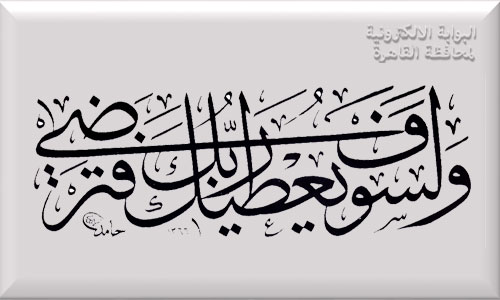 البوابة الالكترونية
لمحافظة القاهرة
ولسوف يعطيك ربك فترضى
حامد